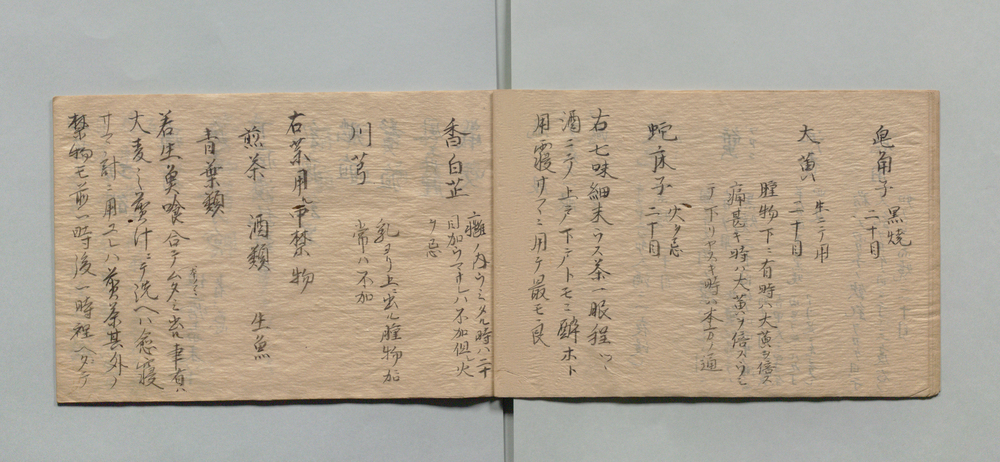 皂角子 黒焼
二十目
大黄 生ニテ用
二十目
腫物下ニ有時ハ大黄ヲ倍ス
痛甚キ時ハ大黄ヲ倍スヘシ
テ下リヤスキ時ハ本方ノ通
蛇床子 火ヲ忌
二十目
右七味細末ウス茶一服程ツヽ
酒ニテ上戸下戸トモニ酔ホト
用寝サマニ用テ最モ良
香白芷
癰ノ内ウミタル時ハ二十
目加ウマナレハ不加但シ火
ヲ忌
川芎
乳ヨリ上ニ出ル腫物加
常ハ不加
右薬用ル中禁物
煎茶 酒類 生魚
青葉類
若生魚喰合テムタミ出ル事有ハ
大麦ヲ煎汁ニテ洗ヘハ愈寝
サマ計ニ用ユレハ煎茶其外ノ
禁物モ前一時後一時程ヘダテ